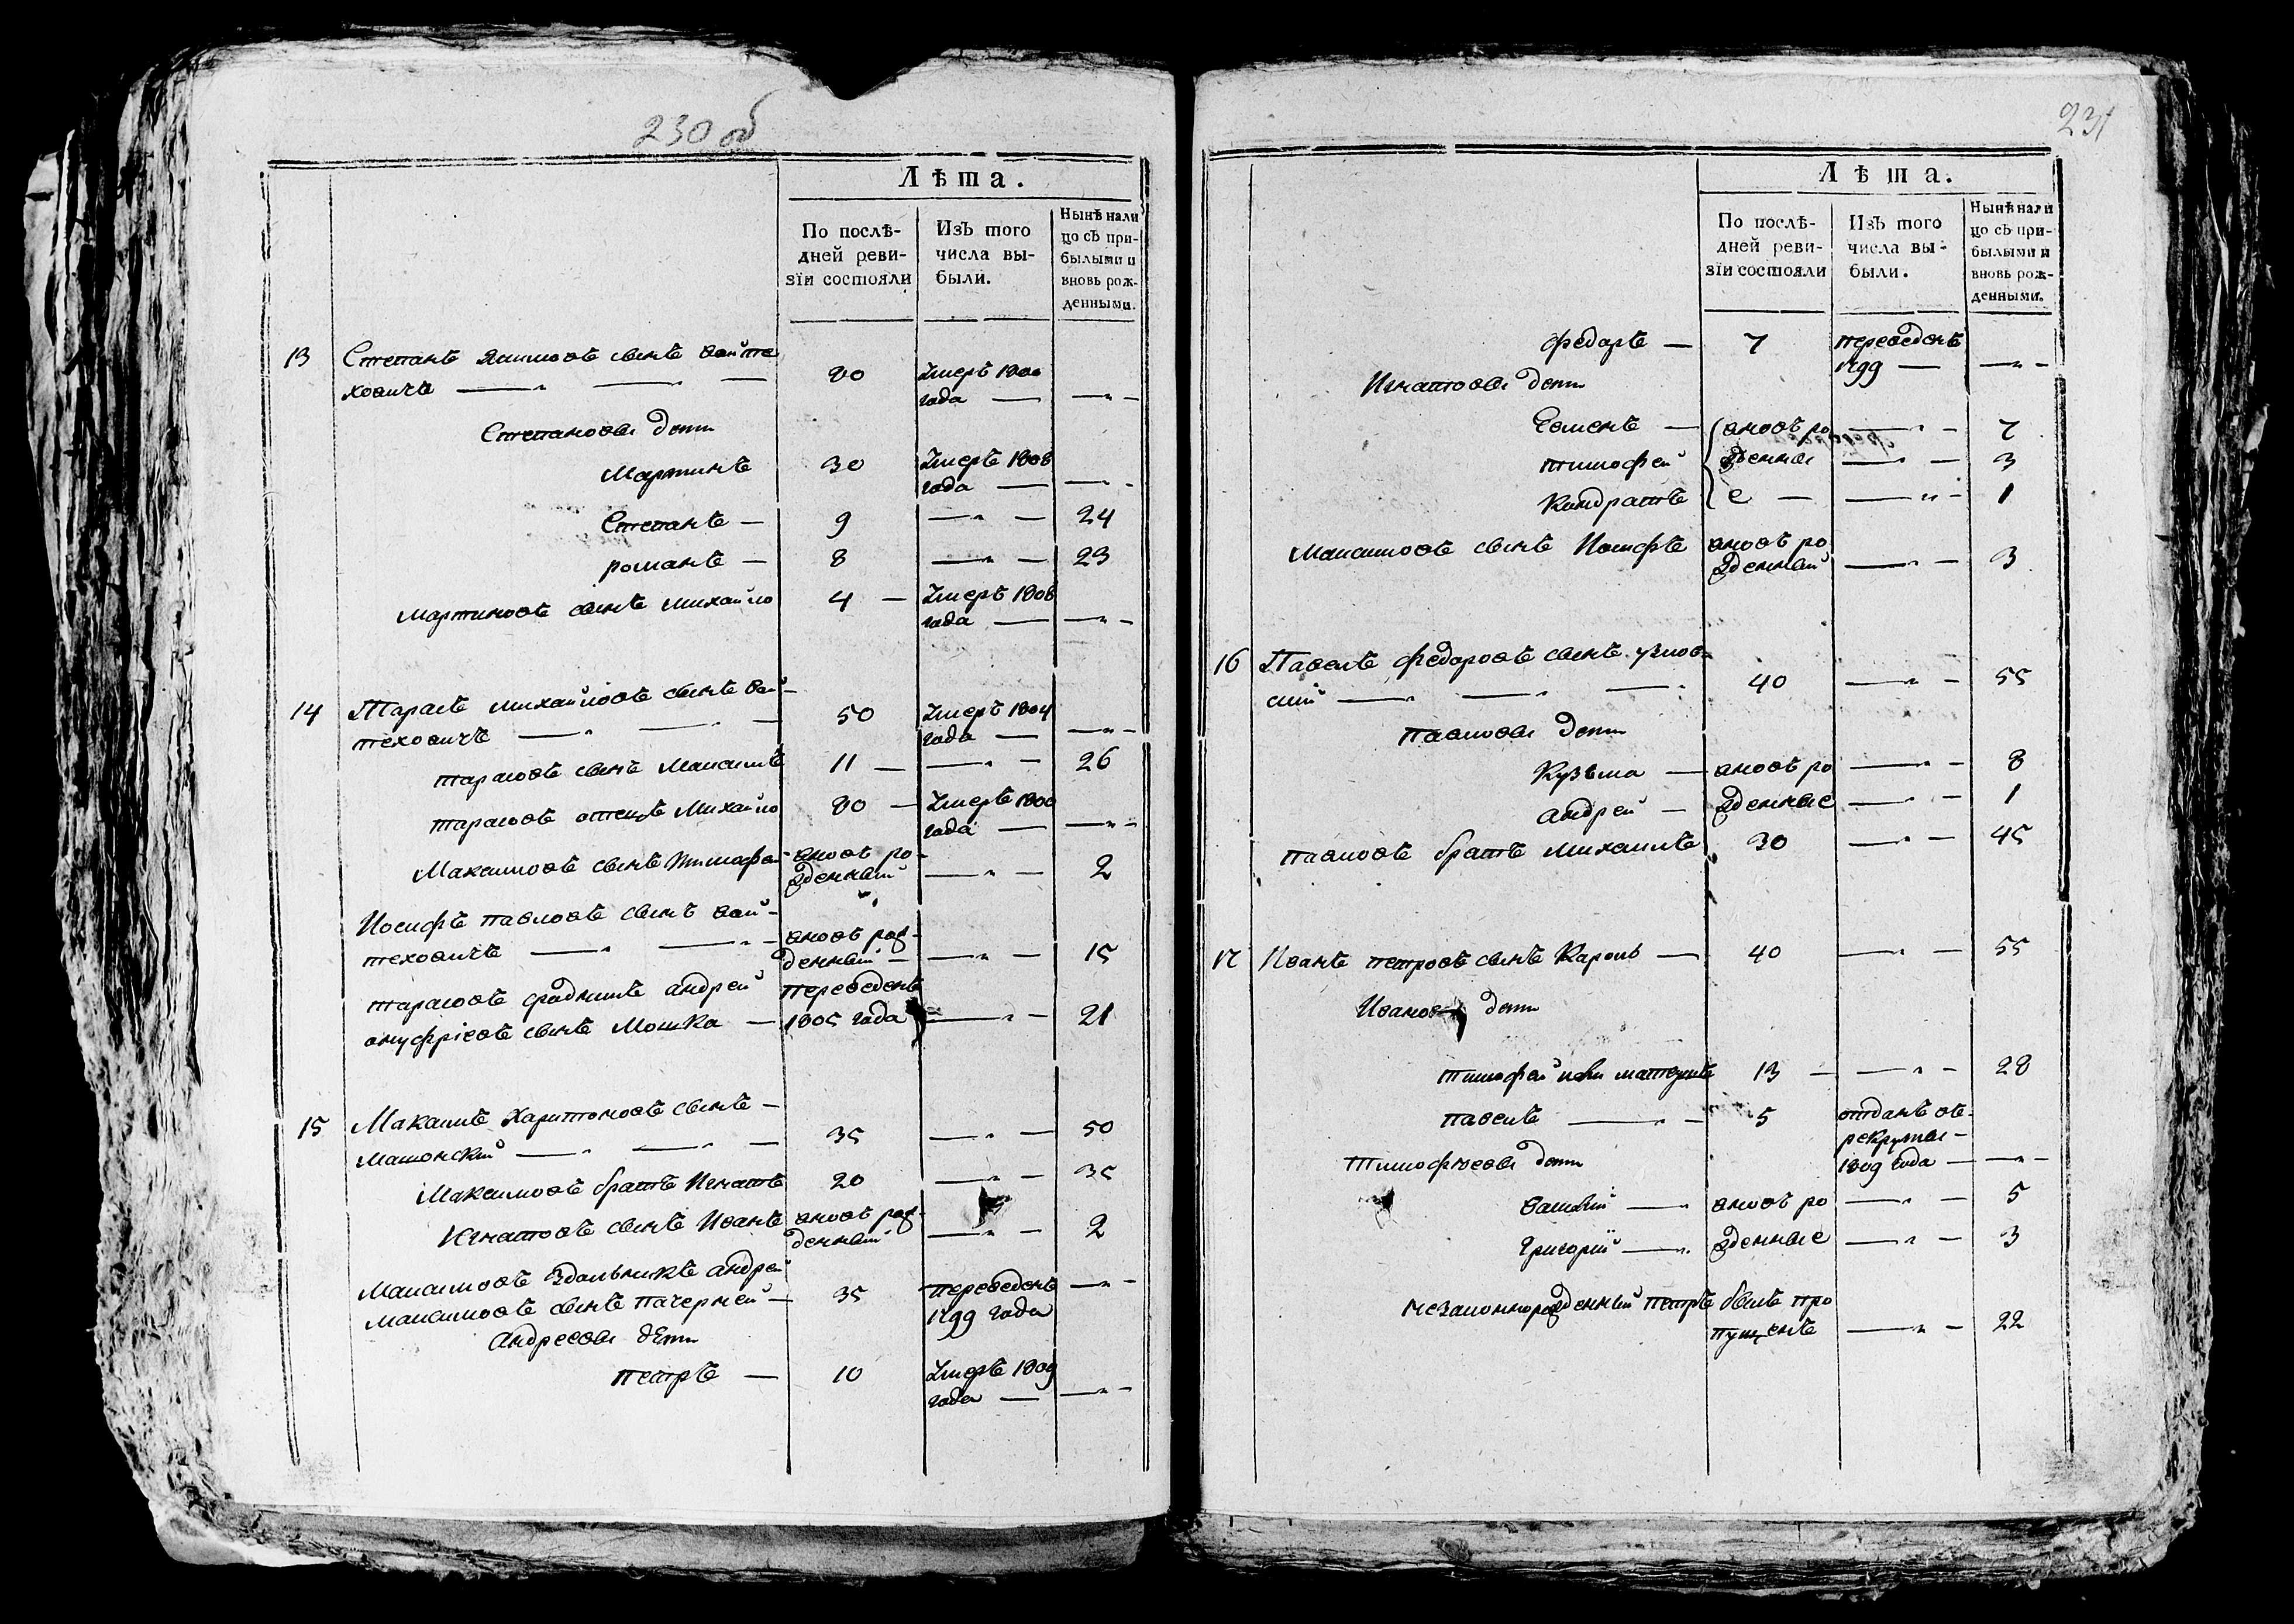 230 об
Лѣта.
По послѣ-
дней реви-
зіи состояли
Изъ того
числа вы-
были.
Нынѣ нали
цо съ при-
былыми и
вновь рож-
денными.
13 Степанъ Якимовъ сынъ Войте
ховичъ — 80 Умеръ 1800
года —
Степановы дети
Мартинъ 30 Умеръ 1808
года —
Степанъ — 9 — 24
романъ — 8 — 23
Мартиновъ сынъ Михайло 4 — Умеръ 1808
года —
14 Тарасъ Михайловъ сынъ Вой-
теховичъ — 50 Умеръ 1804
года —
тарасовъ сынъ Максимъ 11 — 26
тарасовъ отецъ Михайло 80 — Умеръ 1800
года —
Максимовъ сынъ Тимофей вновь ро-
жденный — 2
Иосифъ павловъ сынъ Вой-
теховичъ — вновь рож-
денный — 15
тарасовъ андрей переведенъ
онуфріевъ сынъ Мошка — 1805 года — 21
15 Макаимъ Харитоновъ сынъ —
Машонский — 35 — 50
Максимовъ братъ Игнатъ 20 — 35
Игнатовъ сынъ Иванъ вновь рож-
денный — 2
Максимовъ Здольникъ андрей
максимовъ сынъ пачерней — 35 переведенъ
1799 года
Андреевы дѣти
петръ — 10 Умеръ 1809
года —
231
Лѣта.
По послѣ-
дней реви-
зіи состояли
Изъ того
числа вы-
были.
Нынѣ нали
цо съ при-
былыми и
вновь рож-
денными.
федаръ — 7 переведенъ
1799 —
Игнатовы дети
Семенъ — вновь ро — 7
тимофей жденны — 3
Кондратъ е — 1
Максимовъ сынъ Иосифъ вновь ро
жденный — 3
16 Павелъ федаровъ сынъ узлов-
ский — 40 — 55
павловы дети
Кузьма — вновь ро — 8
андрей — жденные — 1
павловъ братъ михаилъ 30 — 45
17 Иванъ петровъ сынъ Кароль — 40 — 55
Ивановы дети
тимофей 13 — 28
павелъ — 5 отданъ въ
рекруты —
1809 года —
Тимофѣевы дети
василий — вновь ро — 5
Григорий — жденные — 3
незаконнорожденный петръ былъ про
пущенъ — 22